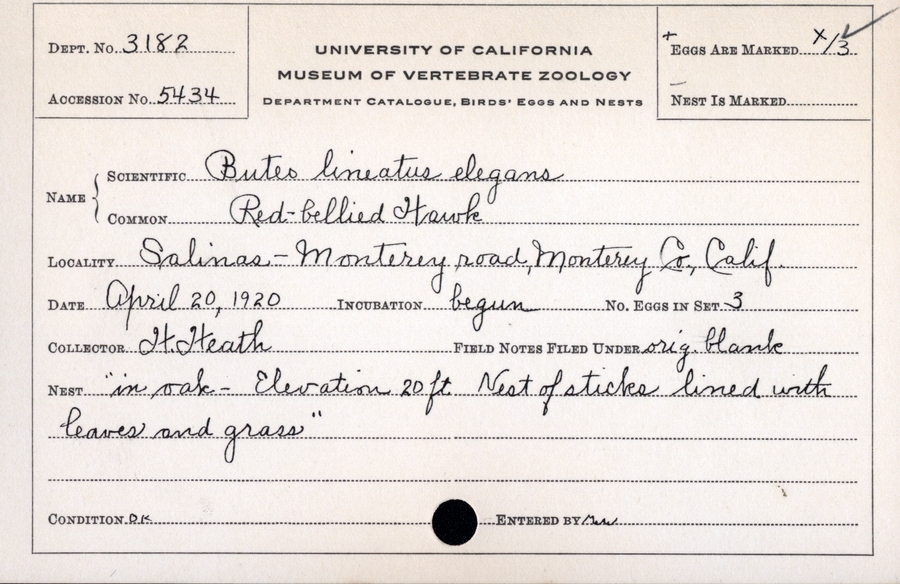 Dept. No. 3182
Accession No. 5434
UNIVERSITY OF CALIFORNIA
MUSEUM OF VERTEBRATE ZOOLOGY
Department Catalogue, Birds' Eggs and Nests
+ Eggs Are Marked X/3
– Nest Is Marked
Name
Scientific Buteo lineatus elegans
Common Red-bellied Hawk
Locality Salinas – Monterey road, Monterey Co., Calif.
Date April 20, 1920 Incubation begun No. Eggs in Set 3
Collector H. Heath Field Notes Filed Under orig. blank
Nest "in oak – Elevation 20 ft Nest of sticks lined with
leaves and grass"
Condition OK Entered by